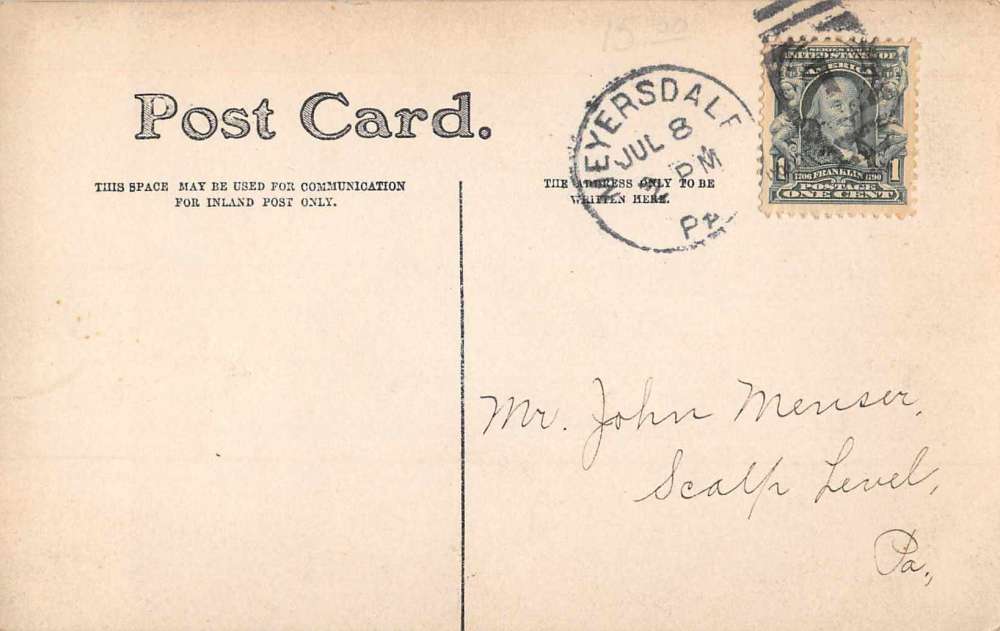 15 00
Post Card.
THIS SPACE MAY BE USED FOR COMMUNICATION
FOR INLAND POST ONLY.
THE ADDRESS ONLY TO BE
WRITTEN HERE.
MEYERSDALE
JUL 8
PM
PA
UNITED STATES OF
AMERICA
1 1
1706 FRANKLIN 1790
POSTAGE
ONE CENT
Mr. John Menser,
Scalp Level,
Pa,